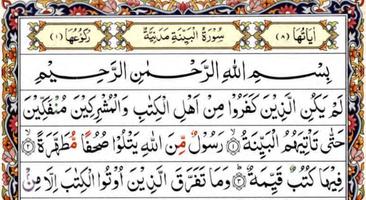 اٰیَاتُهَا (٨) سُوْرَةُ الْبَیِّنَةِ مَدَنِیَّةٌ رُكُوْعُهَا (١)
بِسْمِ اللّٰهِ الرَّحْمٰنِ الرَّحِیْمِ
لَمْ یَكُنِ الَّذِیْنَ كَفَرُوْا مِنْ اَهْلِ الْكِتٰبِ وَالْمُشْرِكِیْنَ مُنْفَكِّیْنَ
حَتّٰی تَاْتِیَهُمُ الْبَیِّنَةُ ۙ﴿١﴾ رَسُوْلٌ مِّنَ اللّٰهِ یَتْلُوْا صُحُفًا مُّطَهَّرَةً ۙ﴿٢﴾
فِیْهَا كُتُبٌ قَیِّمَةٌ ؕ﴿٣﴾ وَمَا تَفَرَّقَ الَّذِیْنَ اُوْتُوا الْكِتٰبَ اِلَّا مِنْۢ